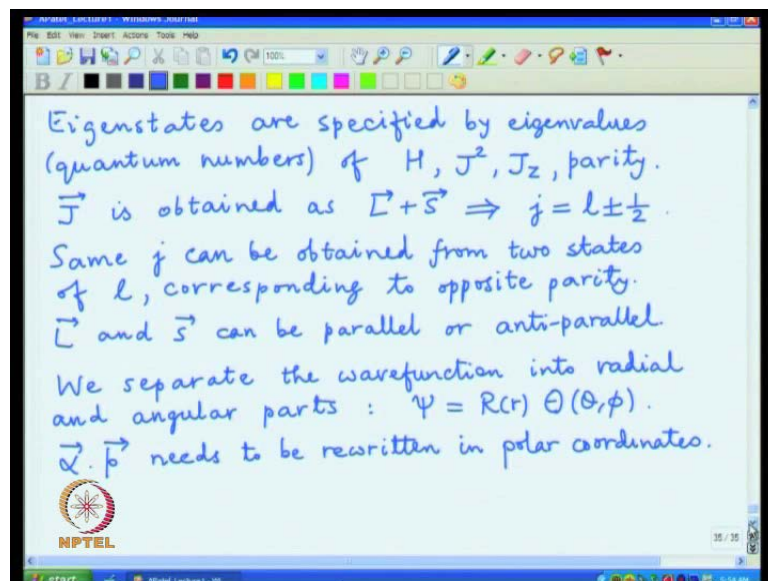 APatel_Lecture1 - Windows Journal
File Edit View Insert Actions Tools Help
100%
B I
Eigenstates are specified by eigenvalues
(quantum numbers) of H, J², J_z, parity.
J⃗ is obtained as L⃗+S⃗ ⇒ j = l ± 1/2.
Same j can be obtained from two states
of l, corresponding to opposite parity.
L⃗ and S⃗ can be parallel or anti-parallel.
We separate the wavefunction into radial
and angular parts : Ψ = R(r) Θ(θ,φ).
α⃗.p⃗ needs to be rewritten in polar coordinates.
NPTEL
35 / 35
start